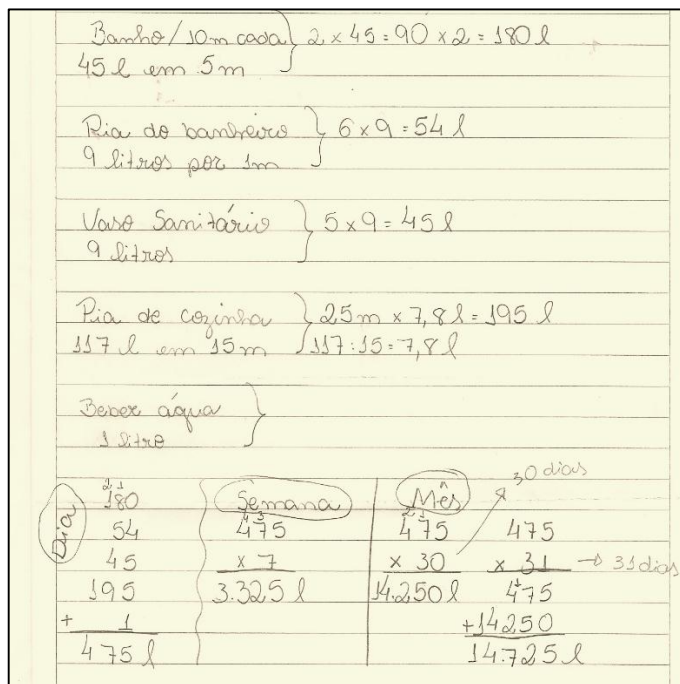 Banho/10m cada } 2 x 45 = 90 x 2 = 180 l
45 l em 5m
Pia do banheiro } 6 x 9 = 54 l
9 litros por 1m
Vaso Sanitário } 5 x 9 = 45 l
9 litros
Pia de cozinha } 25m x 7,8 l = 195 l
117 l em 15m 117:15 = 7,8 l
Beber água }
1 litro
Dia
2 1
180
54
45
195
+ 1
475 l
Semana
4 3
475
x 7
3.325 l
Mês
30 dias
2 1
475
x 30
14.250 l
475
x 31 → 31 dias
1
475
+14250
14.725 l